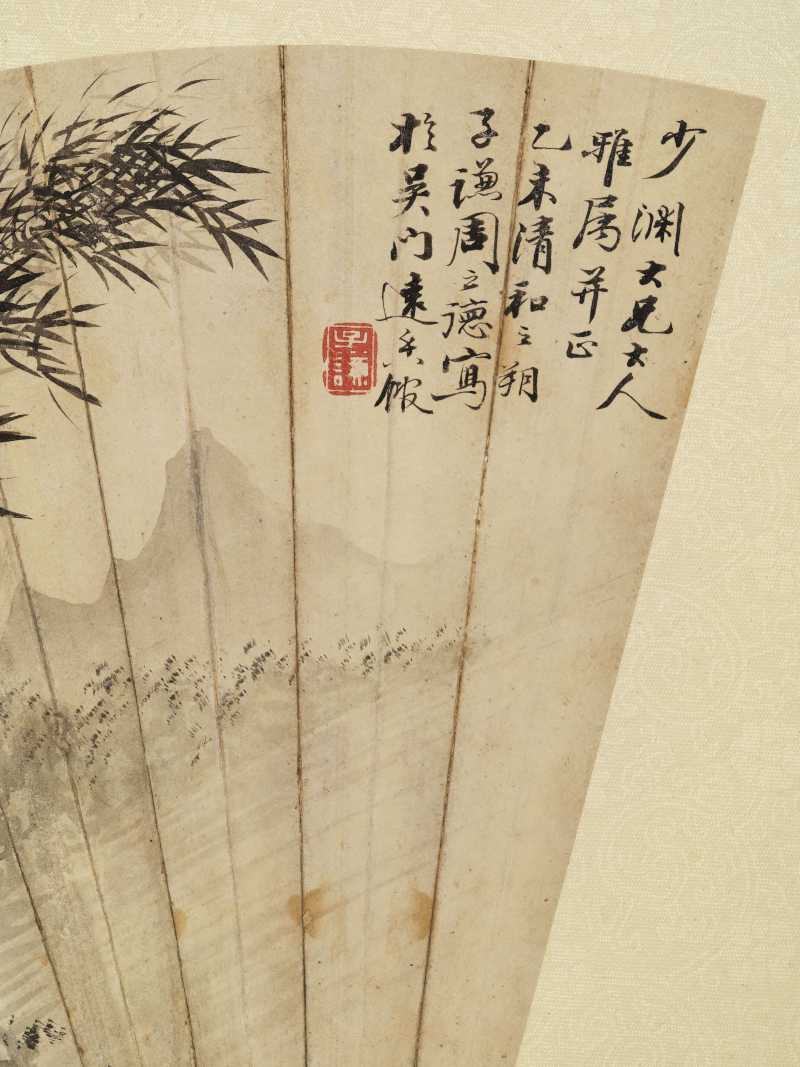 少渊大兄大人
雅属并正
乙未清和之朔
子谦周之德写
于吴门远香馆
子谦